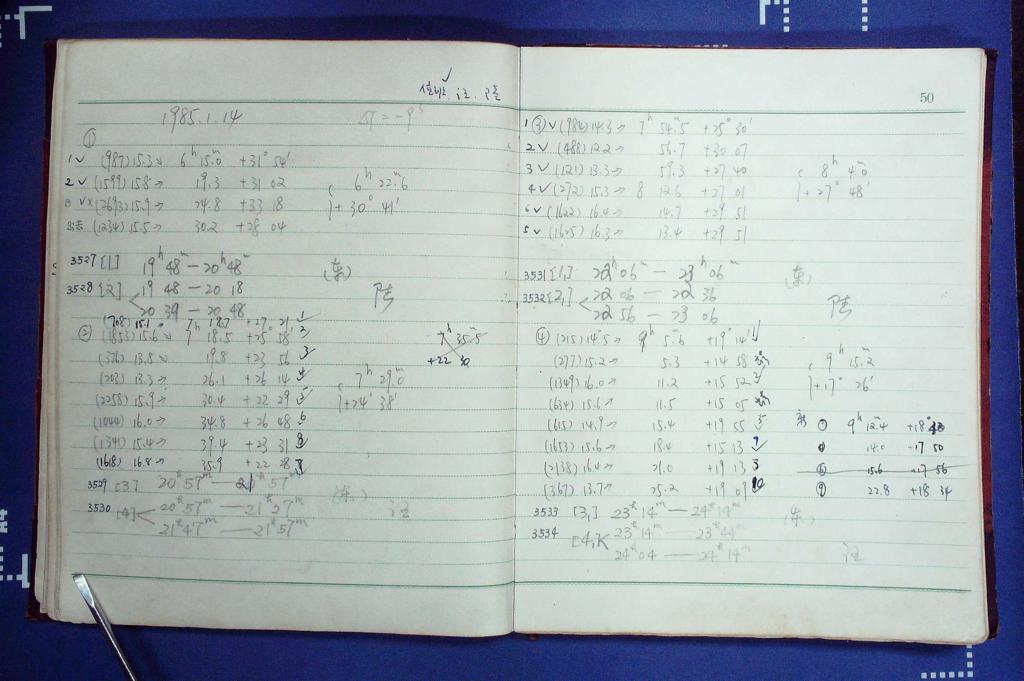 1985.1.14
①
1 ✓ (987) 15.3 → 6ʰ 15.0ᵐ +31° 54′
2 ✓ (1599) 15.8 → 19.3 +31 02
(2693) 15.9 → 24.8 +33 18
(1234) 15.5 → 30.2 +28 04
6ʰ 22.6ᵐ
+30° 41′
3527 [1] 19ʰ 48ᵐ — 20ʰ 48ᵐ (东)
3528 [2] 19 48 — 20 18 陆
20 39 — 20 48
② (1853) 15.6 7ʰ 18.5 +25° 58′ 2
(376) 13.8 19.8 +23 56 3
(203) 13.3 → 26.1 +26 14 4
(2258) 15.9 → 30.4 +22 29 5
(1044) 16.0 → 34.8 +26 48 6
(1341) 15.4 → 39.4 +23 31 8
(1618) 16.8 → 35.9 +22 28 7
7ʰ 35.5ᵐ
+22 30
7ʰ 29.0ᵐ
+24° 38′
3529 [3] 20ʰ 57ᵐ — 21ʰ 57ᵐ (东)
3530 [4] 20ʰ 57ᵐ — 21ʰ 27ᵐ
21ʰ 47ᵐ — 21ʰ 57ᵐ
50
1 ③ ✓ (982) 14.3 → 7ʰ 54.5ᵐ +25° 30′
2 ✓ (488) 12.2 → 56.7 +30 07
3 ✓ (121) 13.3 → 59.3 +27 40
4 ✓ (272) 15.3 → 8 12.6 +27 01
6 ✓ (1622) 16.4 → 14.7 +29 51
5 ✓ (1625) 16.3 → 13.4 +29 51
8ʰ 4.0ᵐ
+27° 48′
3531 [1,] 22ʰ 06ᵐ — 23ʰ 06ᵐ (东)
3532 [2,] 22 06 — 22 36 陆
22 56 — 23 06
④ (215) 14.5 → 9ʰ 5.6ᵐ +19° 14′
(277) 15.2 → 5.3 +14 58
(1349) 16.0 → 11.2 +15 52
(634) 15.6 11.5 +15 05
(615) 14.9 → 15.4 +19 55
(1653) 15.6 → 18.4 +15 13
(2138) 16.4 → 21.0 +19 13
(367) 13.7 → 25.2 +19 07 10
9ʰ 15.2ᵐ
+17° 26′
9ʰ 12.4ᵐ
14.0 +17 50
15.6 +17 56
22.8 +18 34
3533 [3,] 23ʰ 14ᵐ — 24ʰ 14ᵐ (东)
3534 [4,] 23ʰ 14ᵐ — 23ʰ 44ᵐ
24ʰ 04 — 24ʰ 14ᵐ